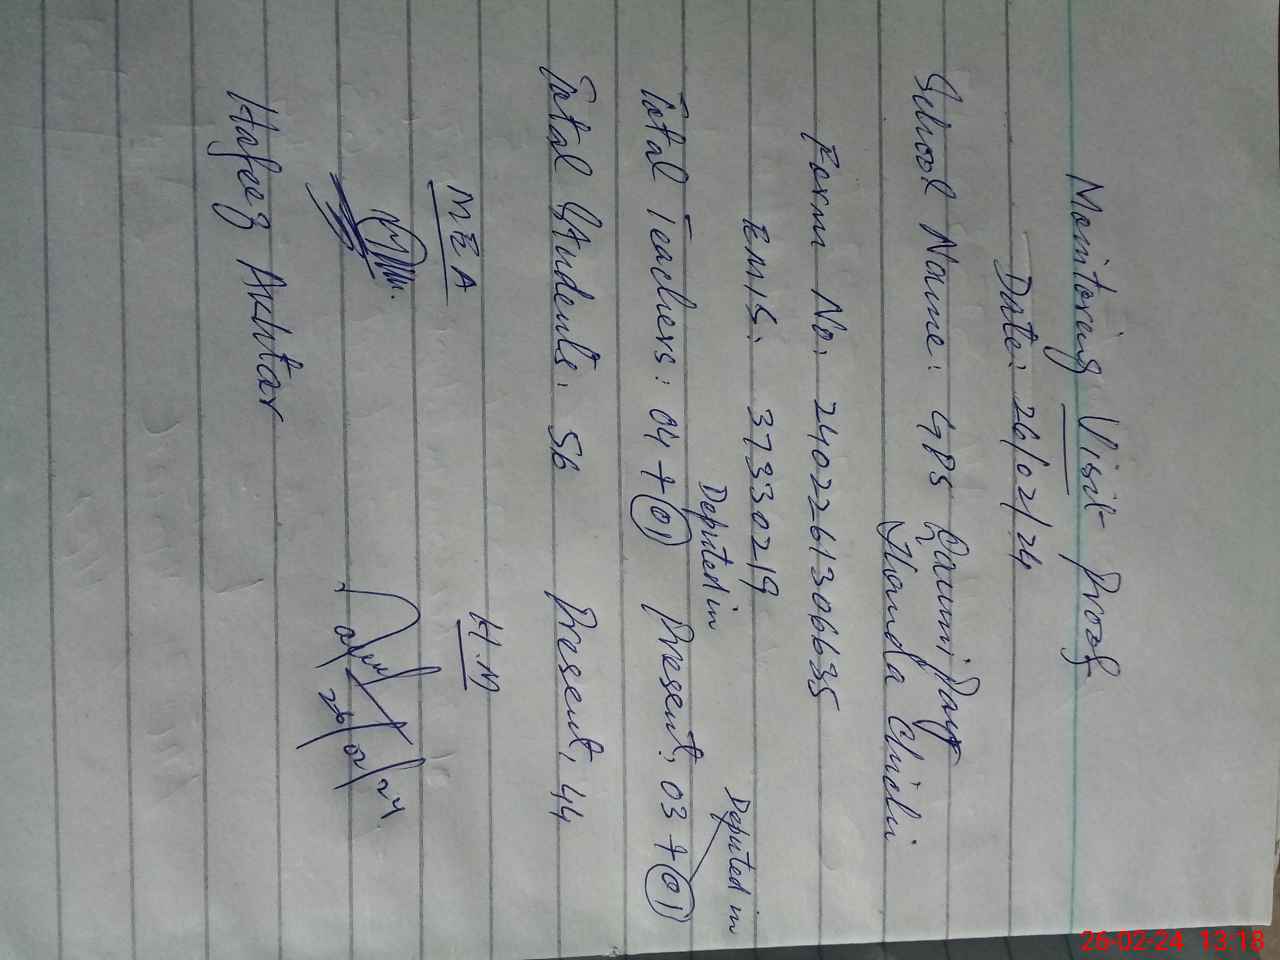 Monitoring Visit Proof
Date: 26/02/24
School Name: GPS Qaumi Razf
Handa Chichi
Form No: 2402261306635
EMIS: 37330219
Deputed in
Deputed in
Total Teachers: 04 + 01 Present: 03 + 01
Total Students: 56 Present: 44
MEA H.M
26/02/24
Hafeez Akhtar
26-02-24 13:18